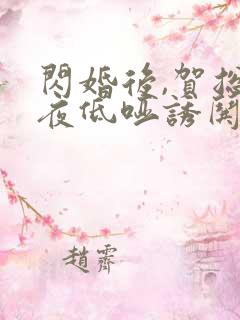 閃婚後,賀總
夜低啞誘閧
趙霽